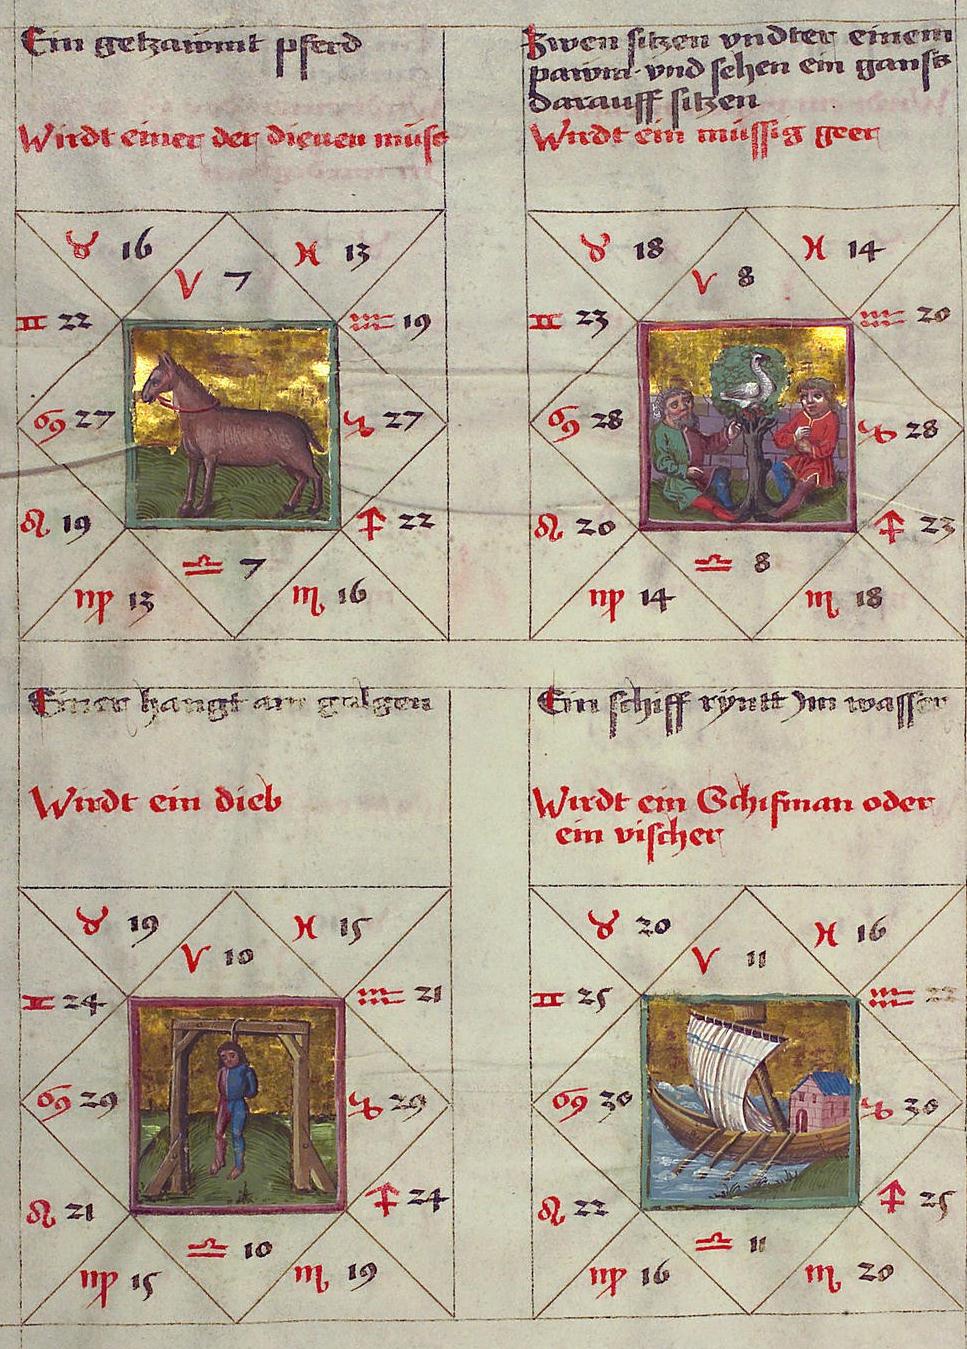 Ein getzawmt pferd
Wirdt einer der dienen müss
♉ 16
♓ 13
♈ 7
♊ 22
♒ 19
♋ 27
♑ 27
♌ 19
♐ 22
♎ 7
♍ 13
♏ 16
Zwen sitzen vndter einem
pawm vnd sehen ein ganss
darauff sitzen
Wirdt ein müssig geer
♉ 18
♓ 14
♈ 8
♊ 23
♒ 20
♋ 28
♑ 28
♌ 20
♐ 23
♎ 8
♍ 14
♏ 18
Einer hangt am galgen
Wirdt ein dieb
♉ 19
♓ 15
♈ 10
♊ 24
♒ 21
♋ 29
♑ 29
♌ 21
♐ 24
♎ 10
♍ 15
♏ 19
Ein schiff rÿntt Jm wasser
Wirdt ein Schifman oder
ein vischer
♉ 20
♓ 16
♈ 11
♊ 25
♒ 22
♋ 30
♑ 30
♌ 22
♐ 25
♎ 11
♍ 16
♏ 20